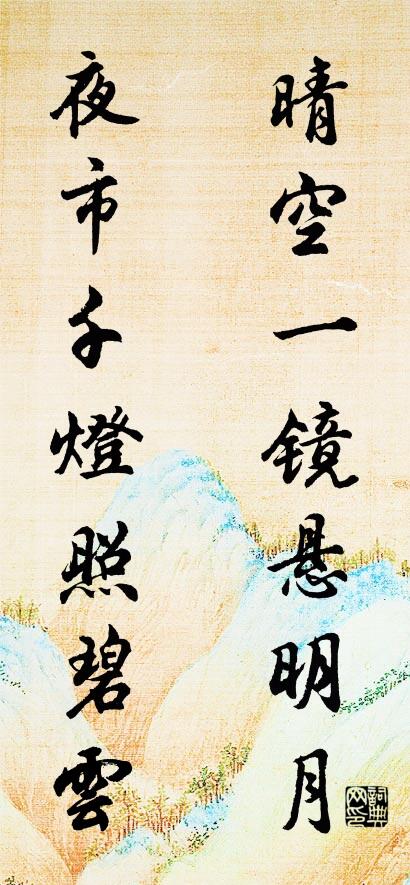 晴空一镜悬明月
夜市千燈照碧雲
詞典网印